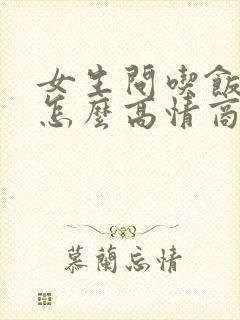 女生問喫飯
怎麼高情商
慕蘭忘情